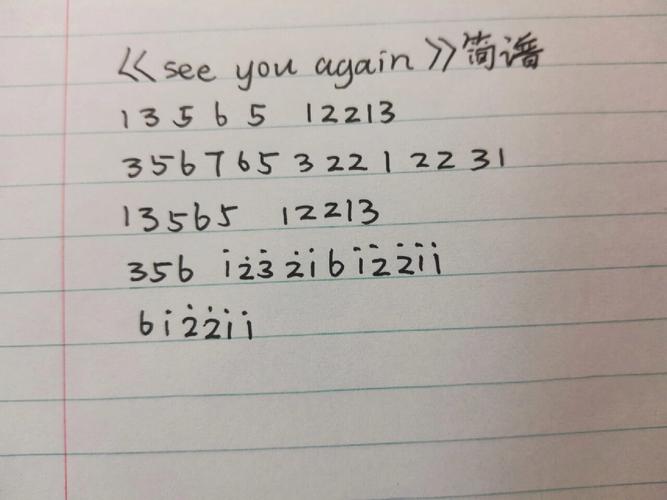 《see you again》简谱
1 3 5 6 5 1 2 2 1 3
3 5 6 7 6 5 3 2 2 1 2 2 3 1
1 3 5 6 5 1 2 2 1 3
3 5 6 1̇ 2̇ 3̇ 2̇ 1̇ 6 1̇ 2̇ 2̇ 1̇ 1̇
6 1̇ 2̇ 2̇ 1̇ 1̇